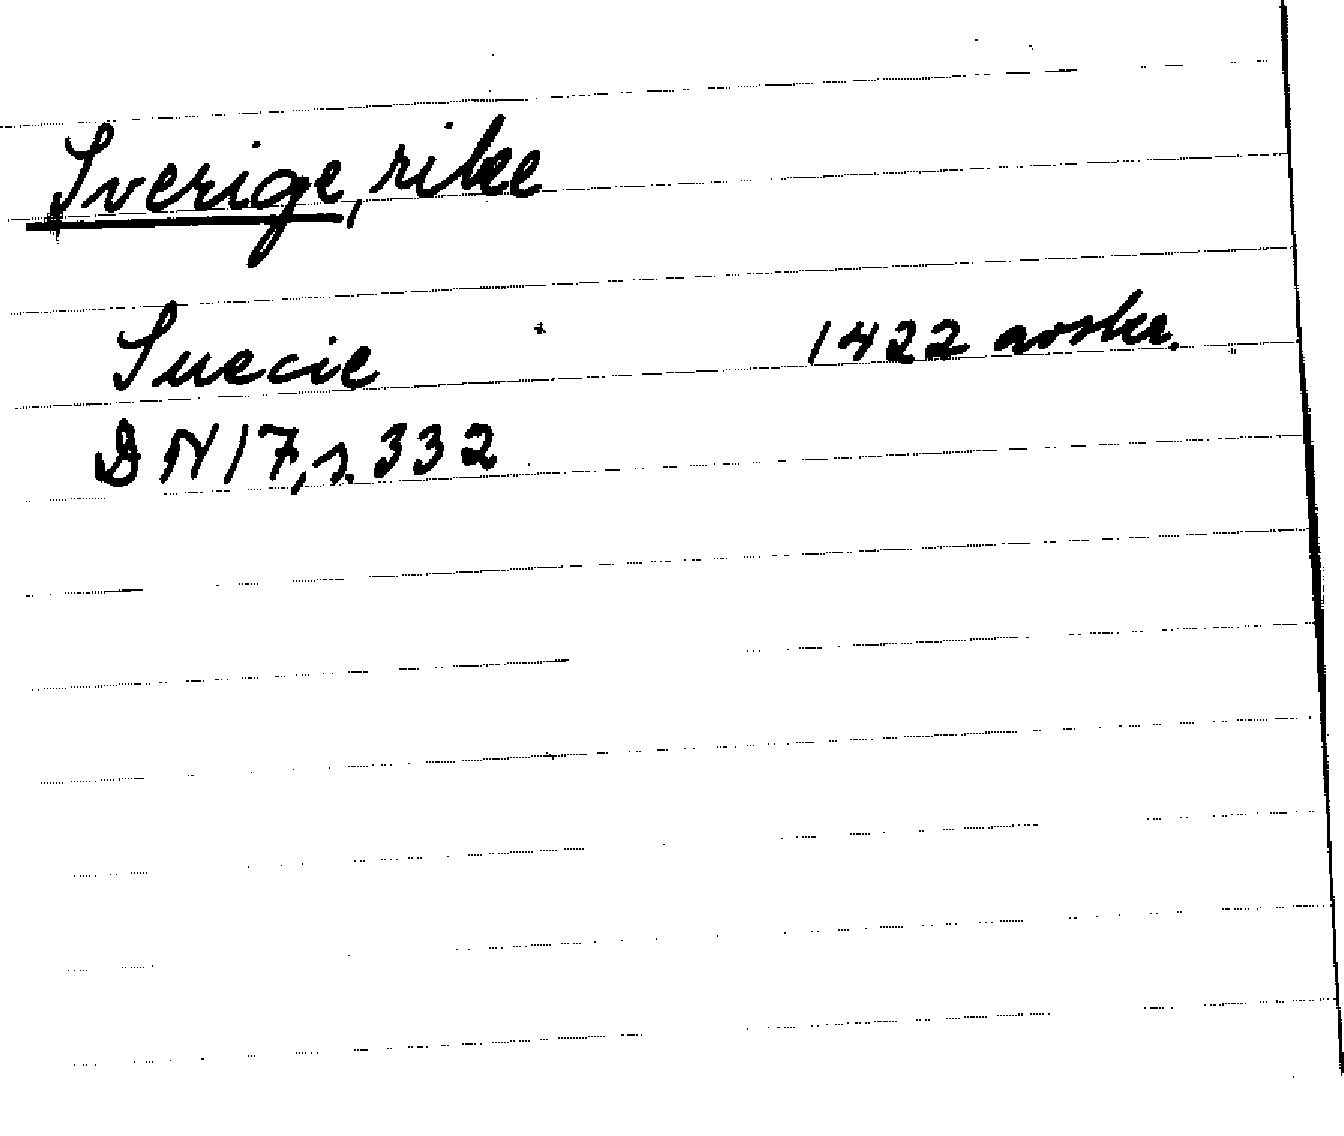 Sverige, rike
Suecie 1422 avskr.
DN 17, s. 332